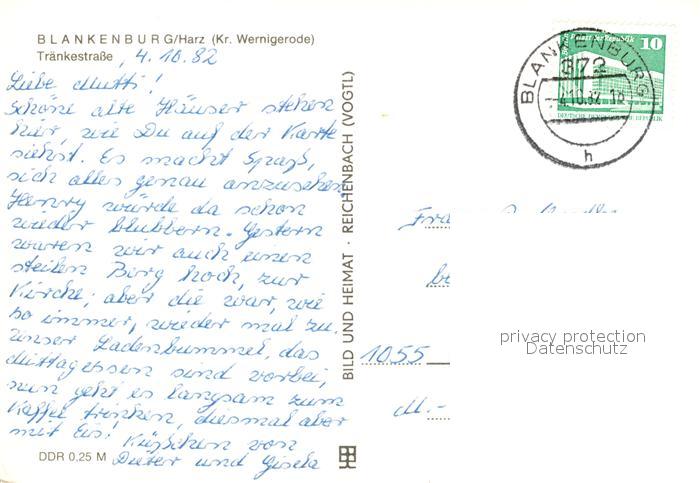 BLANKENBURG/Harz (Kr. Wernigerode)
Tränkestraße, 4.10.82
Liebe Mutti!
Schöne alte Häuser stehen
hier, wie Du auf der Karte
siehst. Es macht Spaß,
sich alles genau anzusehen.
Henry würde da schon
wieder blubbern. Gestern
waren wir auch einen
steilen Berg hoch, zur
Kirche; aber die war, wie
so immer, wieder mal zu.
Unser Ladenbummel, das
Mittagessen sind vorbei,
nun geht es langsam zum
Kaffee trinken, diesmal aber
mit Eis! Küßchen von
Dieter und Gisela
DDR 0,25 M
BILD UND HEIMAT · REICHENBACH (VOGTL)
10
DEUTSCHE DEMOKRATISCHE REPUBLIK
BLANKENBURG
372
10.82
h
1055
M.-
privacy protection
Datenschutz